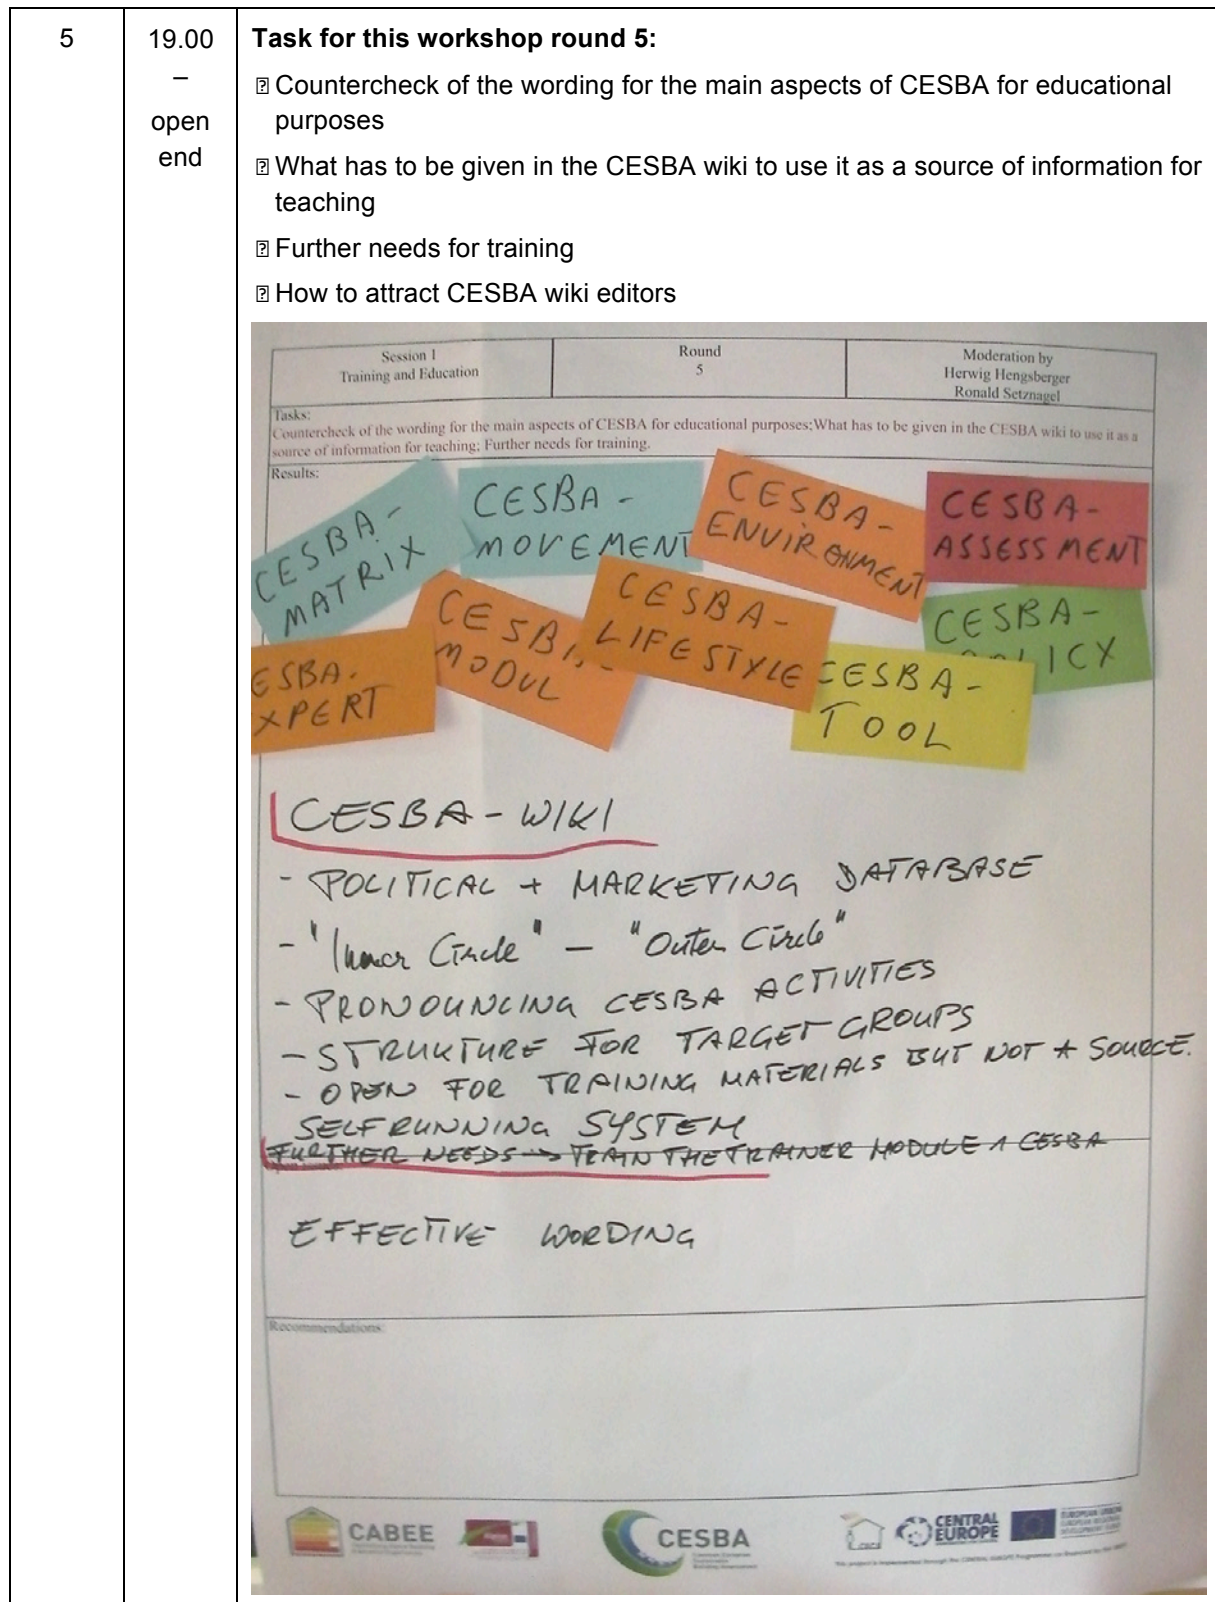 5
19.00
–
open
end
Task for this workshop round 5:
Countercheck of the wording for the main aspects of CESBA for educational
purposes
What has to be given in the CESBA wiki to use it as a source of information for
teaching
Further needs for training
How to attract CESBA wiki editors
Session 1
Training and Education
Round
5
Moderation by
Herwig Hengsberger
Ronald Setznagel
Tasks:
Countercheck of the wording for the main aspects of CESBA for educational purposes;What has to be given in the CESBA wiki to use it as a
source of information for teaching; Further needs for training.
Results:
CESBA-
MATRIX
CESBA-
MOVEMENT
CESBA-
ENVIRONMENT
CESBA-
ASSESSMENT
ESBA-
XPERT
CESBA-
MODUL
CESBA-
LIFESTYLE
CESBA-
TOOL
CESBA-
POLICY
CESBA-WIKI
- POLITICAL + MARKETING DATABASE
- "Inner Circle" – "Outer Circle"
- PRONOUNCING CESBA ACTIVITIES
- STRUKTURE FOR TARGET GROUPS
- OPEN FOR TRAINING MATERIALS BUT NOT A SOURCE.
SELFRUNNING SYSTEM
FURTHER NEEDS -> TRAIN THE TRAINER MODULE 1 CESBA
EFFECTIVE WORDING
Recommendations:
CABEE
CESBA
CENTRAL
EUROPE
EUROPEAN UNION